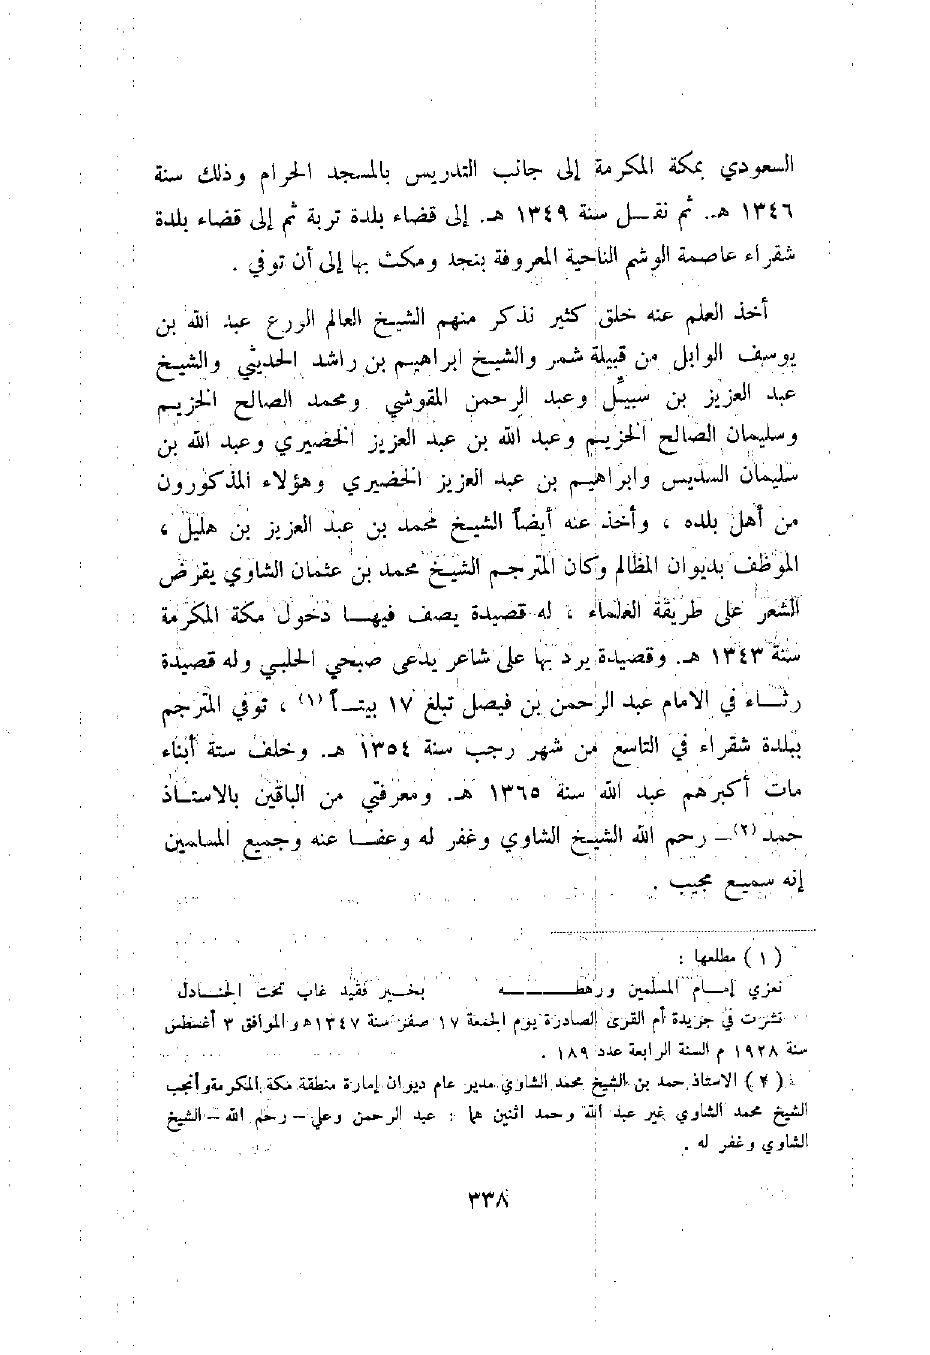 السعودي بمكة المكرمة إلى جانب التدريس بالمسجد الحرام وذلك سنة
١٣٤٦ هـ. ثم نقـل سنة ١٣٤٩ هـ. إلى قضاء بلدة تربة ثم إلى قضاء بلدة
شقراء عاصمة الوشم الناحية المعروفة بنجد ومكث بها إلى أن توفي .
أخذ العلم عنه خلق كثير نذكر منهم الشيخ العالم الورع عبد الله بن
يوسف الوابل من قبيلة شمر والشيخ ابراهيم بن راشد الحديثي والشيخ
عبد العزيز بن سبيّل وعبد الرحمن المقوشي ومحمد الصالح الخزيم
وسليمان الصالح الخزيم وعبد الله بن عبد العزيز الخضيري وعبد الله بن
سليمان السديس وابراهيم بن عبد العزيز الخضيري وهؤلاء المذكورون
من أهل بلده ، وأخذ عنه أيضاً الشيخ محمد بن عبد العزيز بن هليل ،
الموظف بديوان المظالم وكان المترجم الشيخ محمد بن عثمان الشاوي يقرض
الشعر على طريقة العلماء ، له قصيدة يصف فيهـا دخول مكة المكرمة
سنة ١٣٤٣ هـ. وقصيدة يرد بها على شاعر يدعى صبحي الحلبي وله قصيدة
رثـاء في الامام عبد الرحمن بن فيصل تبلغ ١٧ بيتـاً (١) ، توفي المترجم
ببلدة شقراء في التاسع من شهر رجب سنة ١٣٥٤ هـ. وخلف ستة أبناء
مات أكبرهم عبد الله سنة ١٣٦٥ هـ. ومعرفتي من الباقين بالاستـاذ
حمد (٢) ــ رحم الله الشيخ الشاوي وغفر له وعفـا عنه وجميع المسلمين
إنه سميع مجيب .
( ١ ) مطلعها :
نعزي إمـام المسلمين ورهطـــه بخـير فقيد غاب تحت الجنـادل
نشرت في جريدة أم القرى الصادرة يوم الجمعة ١٧ صفر سنة ١٣٤٧ هـ والموافق ٣ أغسطس
سنة ١٩٢٨ م السنة الرابعة عدد ١٨٩ .
( ٢ ) الاستاذ حمد بن الشيخ محمد الشاوي مدير عام ديوان إمارة منطقة مكة المكرمة وأنجب
الشيخ محمد الشاوي غير عبد الله وحمد اثنين هما : عبد الرحمن وعلي – رحم الله – الشيخ
الشاوي وغفر له .
٣٣٨